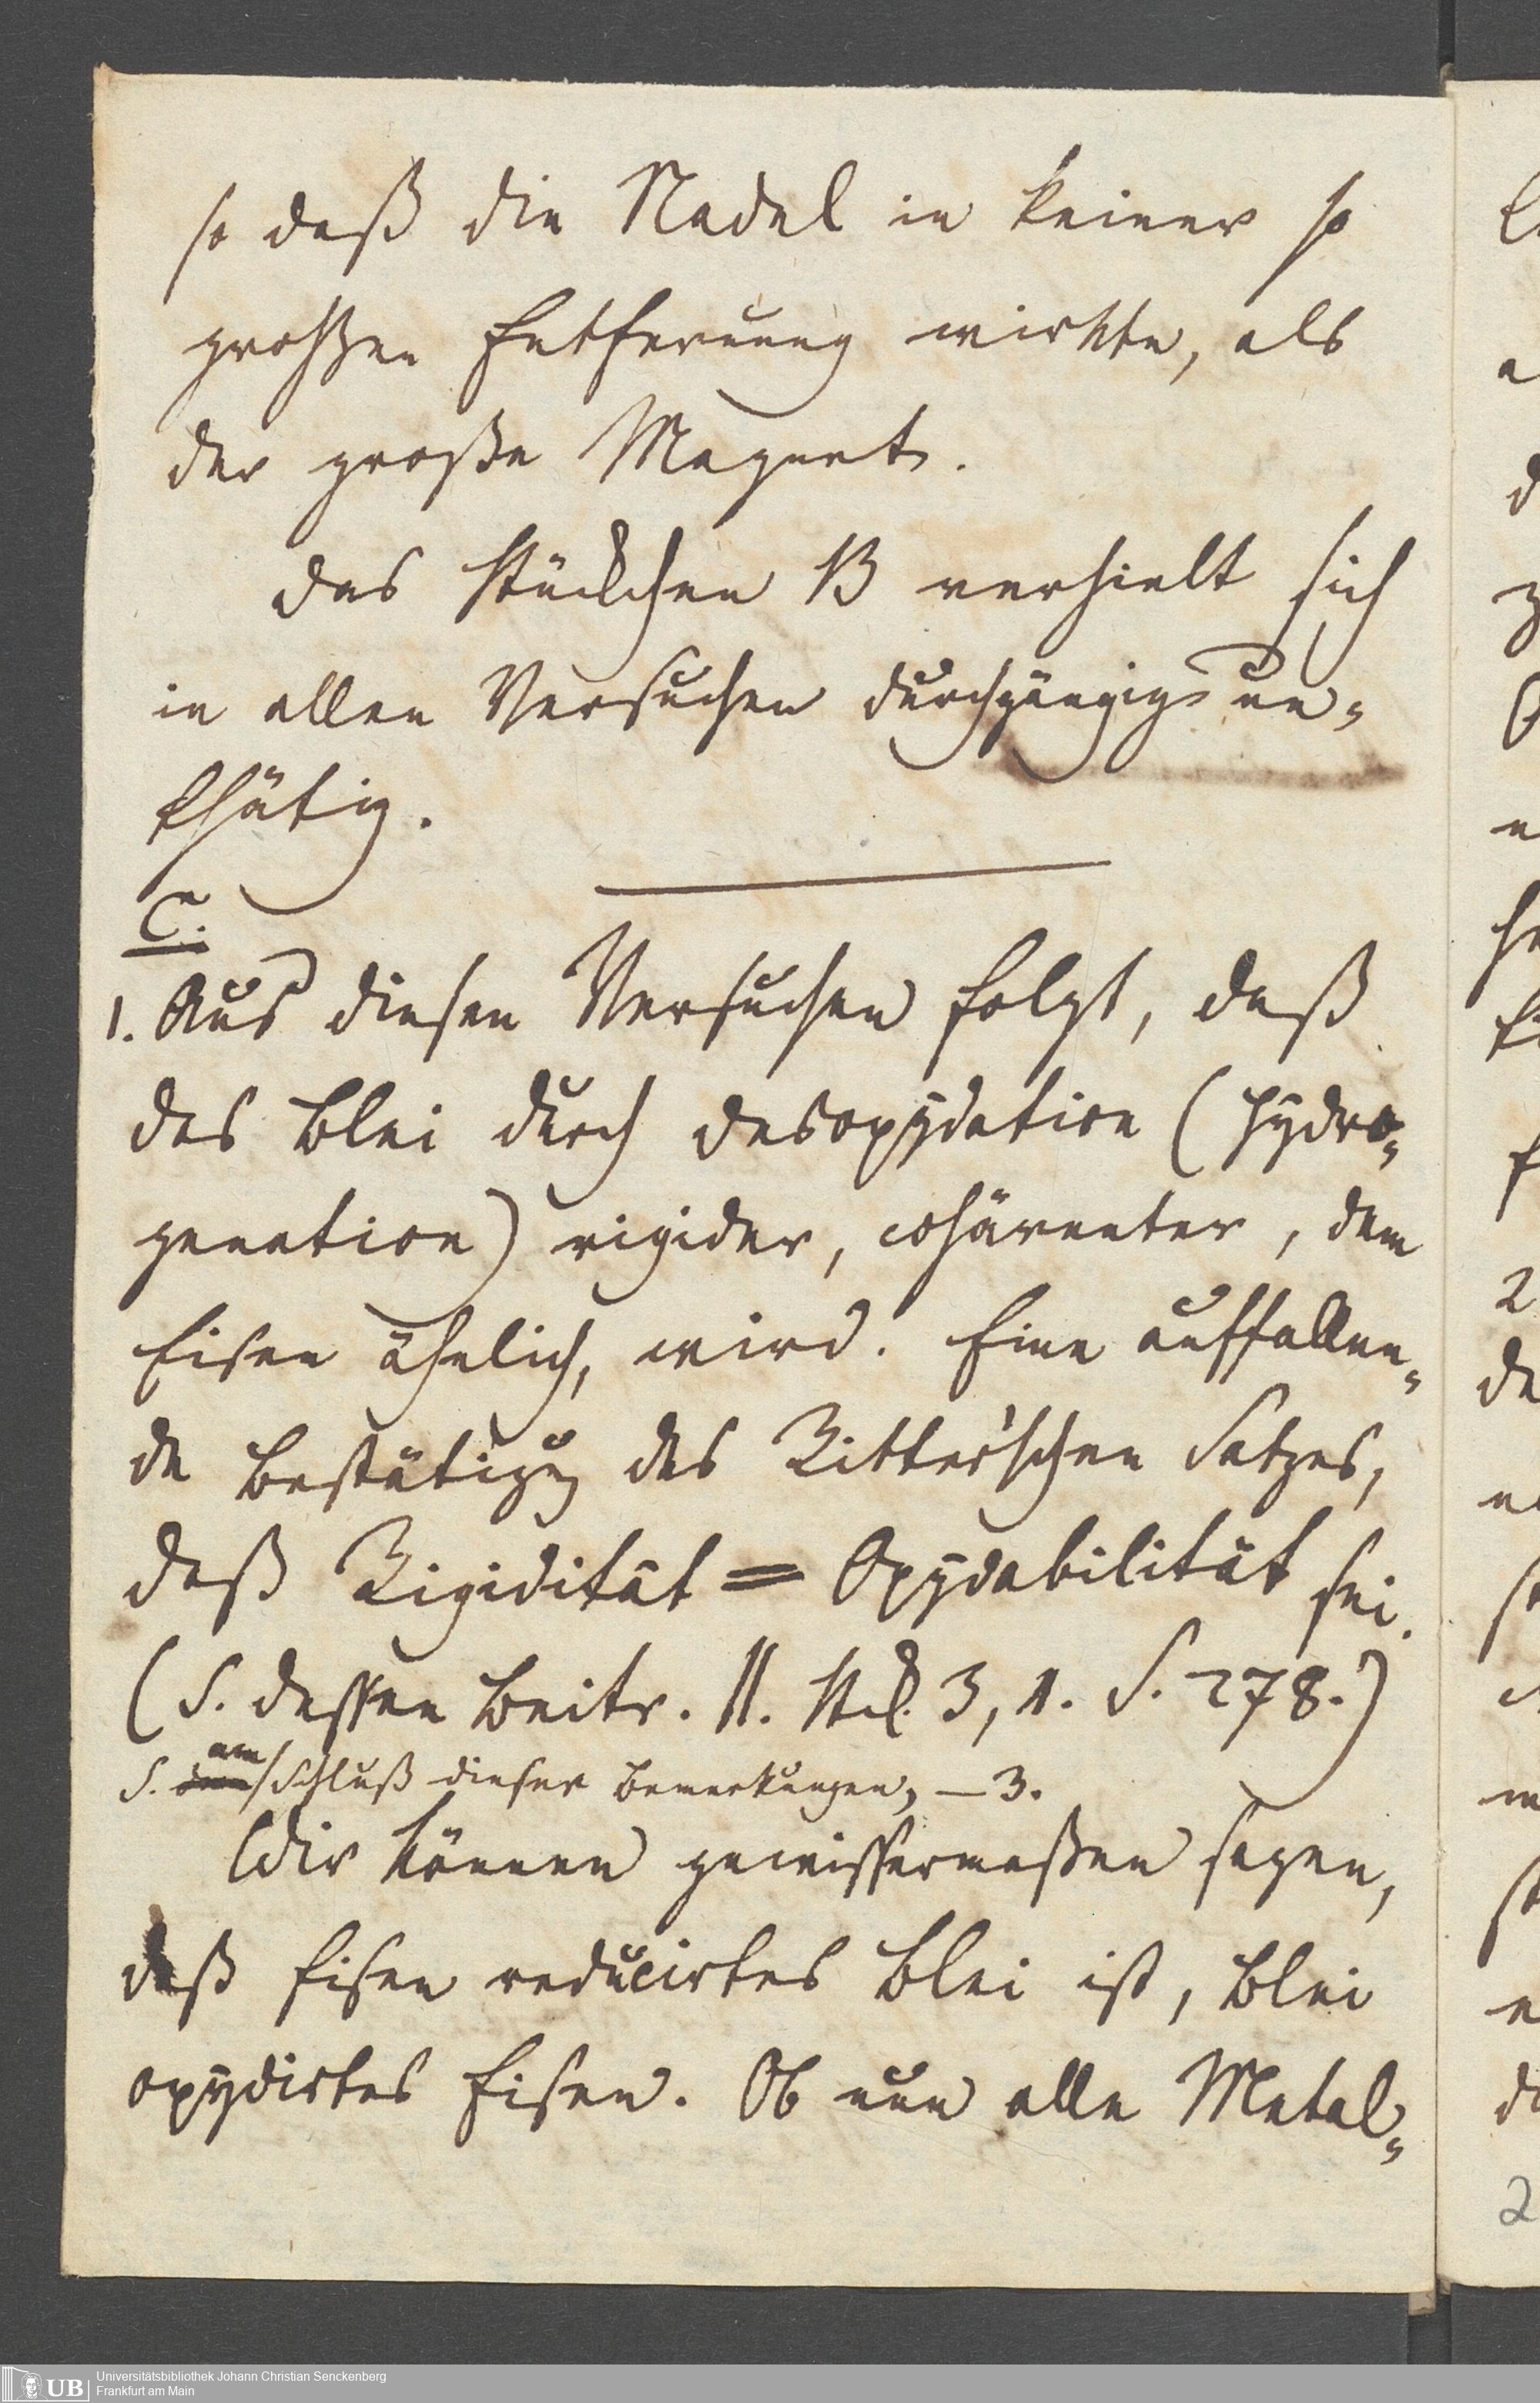 so daß die Nadel in keiner so
großen Entfernung wirkte, als
der große Magnet.
Das Stückchen B verhielt sich
in allen Versuchen durchgängig un-
thätig.
C.
1. Aus diesen Versuchen folgt, daß
das Blei durch Desoxydation (Hydro-
genation) rigider, cohärenter, dem
Eisen ähnlich, wird. Eine auffallen-
de Bestätigung des Ritter'schen Satzes,
daß Rigidität = Oxydabilität sei.
(S. dessen Beitr. II. Stck. 3, 4. S. 278.)
S. am Schluß dieser Bemerkungen, — 3.
Wir können gewissermaßen sagen,
daß Eisen reducirtes Blei ist, Blei
oxydirtes Eisen. Ob nun alle Metal-
Universitätsbibliothek Johann Christian Senckenberg
Frankfurt am Main
UB